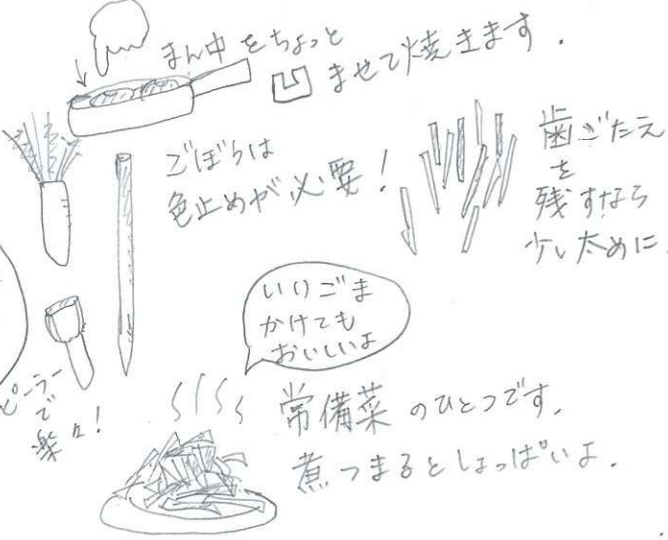 まん中をちょっと
凹ませて焼きます.
ごぼうは
色止めが必要!
歯ごたえ
を
残すなら
少し太めに.
ピーラー
で
楽々!
いりごま
かけても
おいしいよ
常備菜のひとつです.
煮つまるとしょっぱいよ.